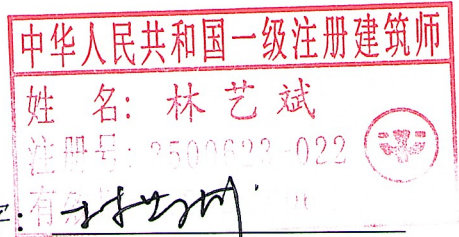 中华人民共和国一级注册建筑师
姓 名: 林艺斌
注册号: 3500622-022
有